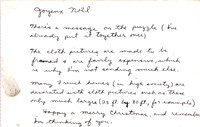 Joyeux Noël
There's a message on the puzzle (I've
already put it together once)
The cloth pictures are made to be
framed & are fairly expensive, which
is why I'm not sending more else.
Many French homes (in high society) are
decorated with cloth pictures such as these
only much larger (25 ft by 30 ft, for example)
Happy a merry Christmas, and remember
I'm thinking of you.